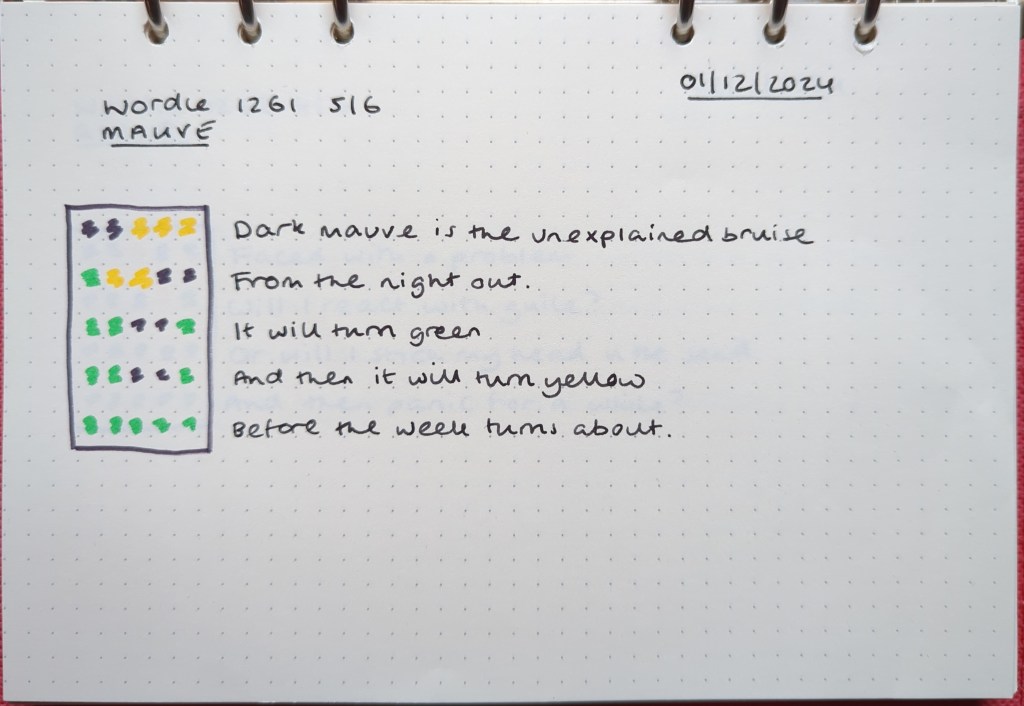 Wordle 1261 5/6
MAUVE
01/12/2024
Dark mauve is the unexplained bruise
From the night out.
It will turn green
And then it will turn yellow
Before the week turns about.